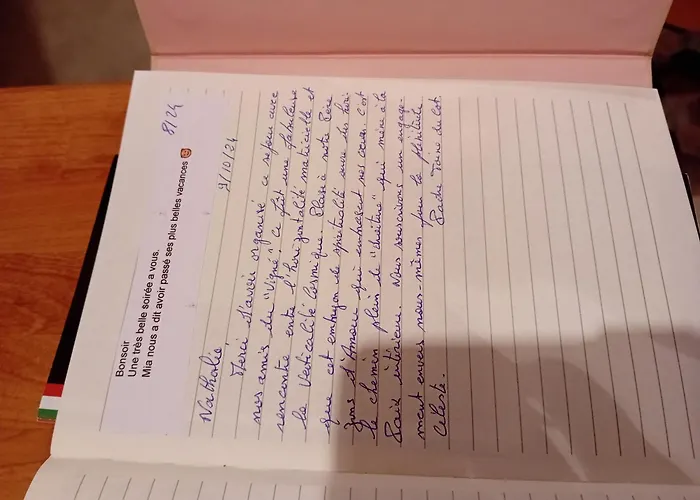 Bonsoir
Une très belle soirée a vous.
Mia nous a dit avoir passé ses plus belles vacances 🤩
8/24
Nathalie
9/10/24
Merci d'avoir organisé ce séjour avec
nos amis du "Vigné" ce fût une fabuleuse
rencontre entre l'horizontalité matricielle et
la Verticalité Cosmique. Plaise à notre Père
que cet embryon de spiritualité ouvre des hori
zons d'Amour qui embrasent nos coeurs. C'est
le chemin plein de "droiture" qui mène à la
Paix intérieure. Nous souscrivons un engage-
ment envers nous-mêmes pour la plénitude
Céleste.
du Lot.